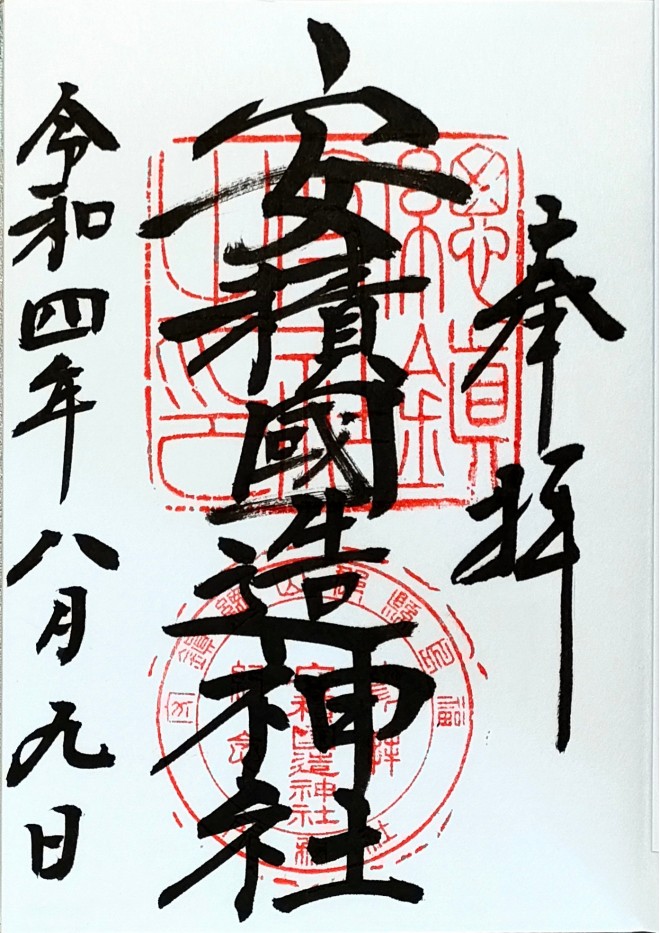 奉拝
安積國造神社
令和四年八月九日
總鎮
安積國造神社